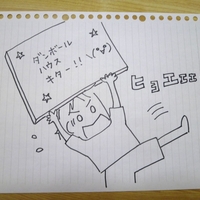 ダンボール
ハウス
キター!!ヽ(°▽°)
ヒョエエエ